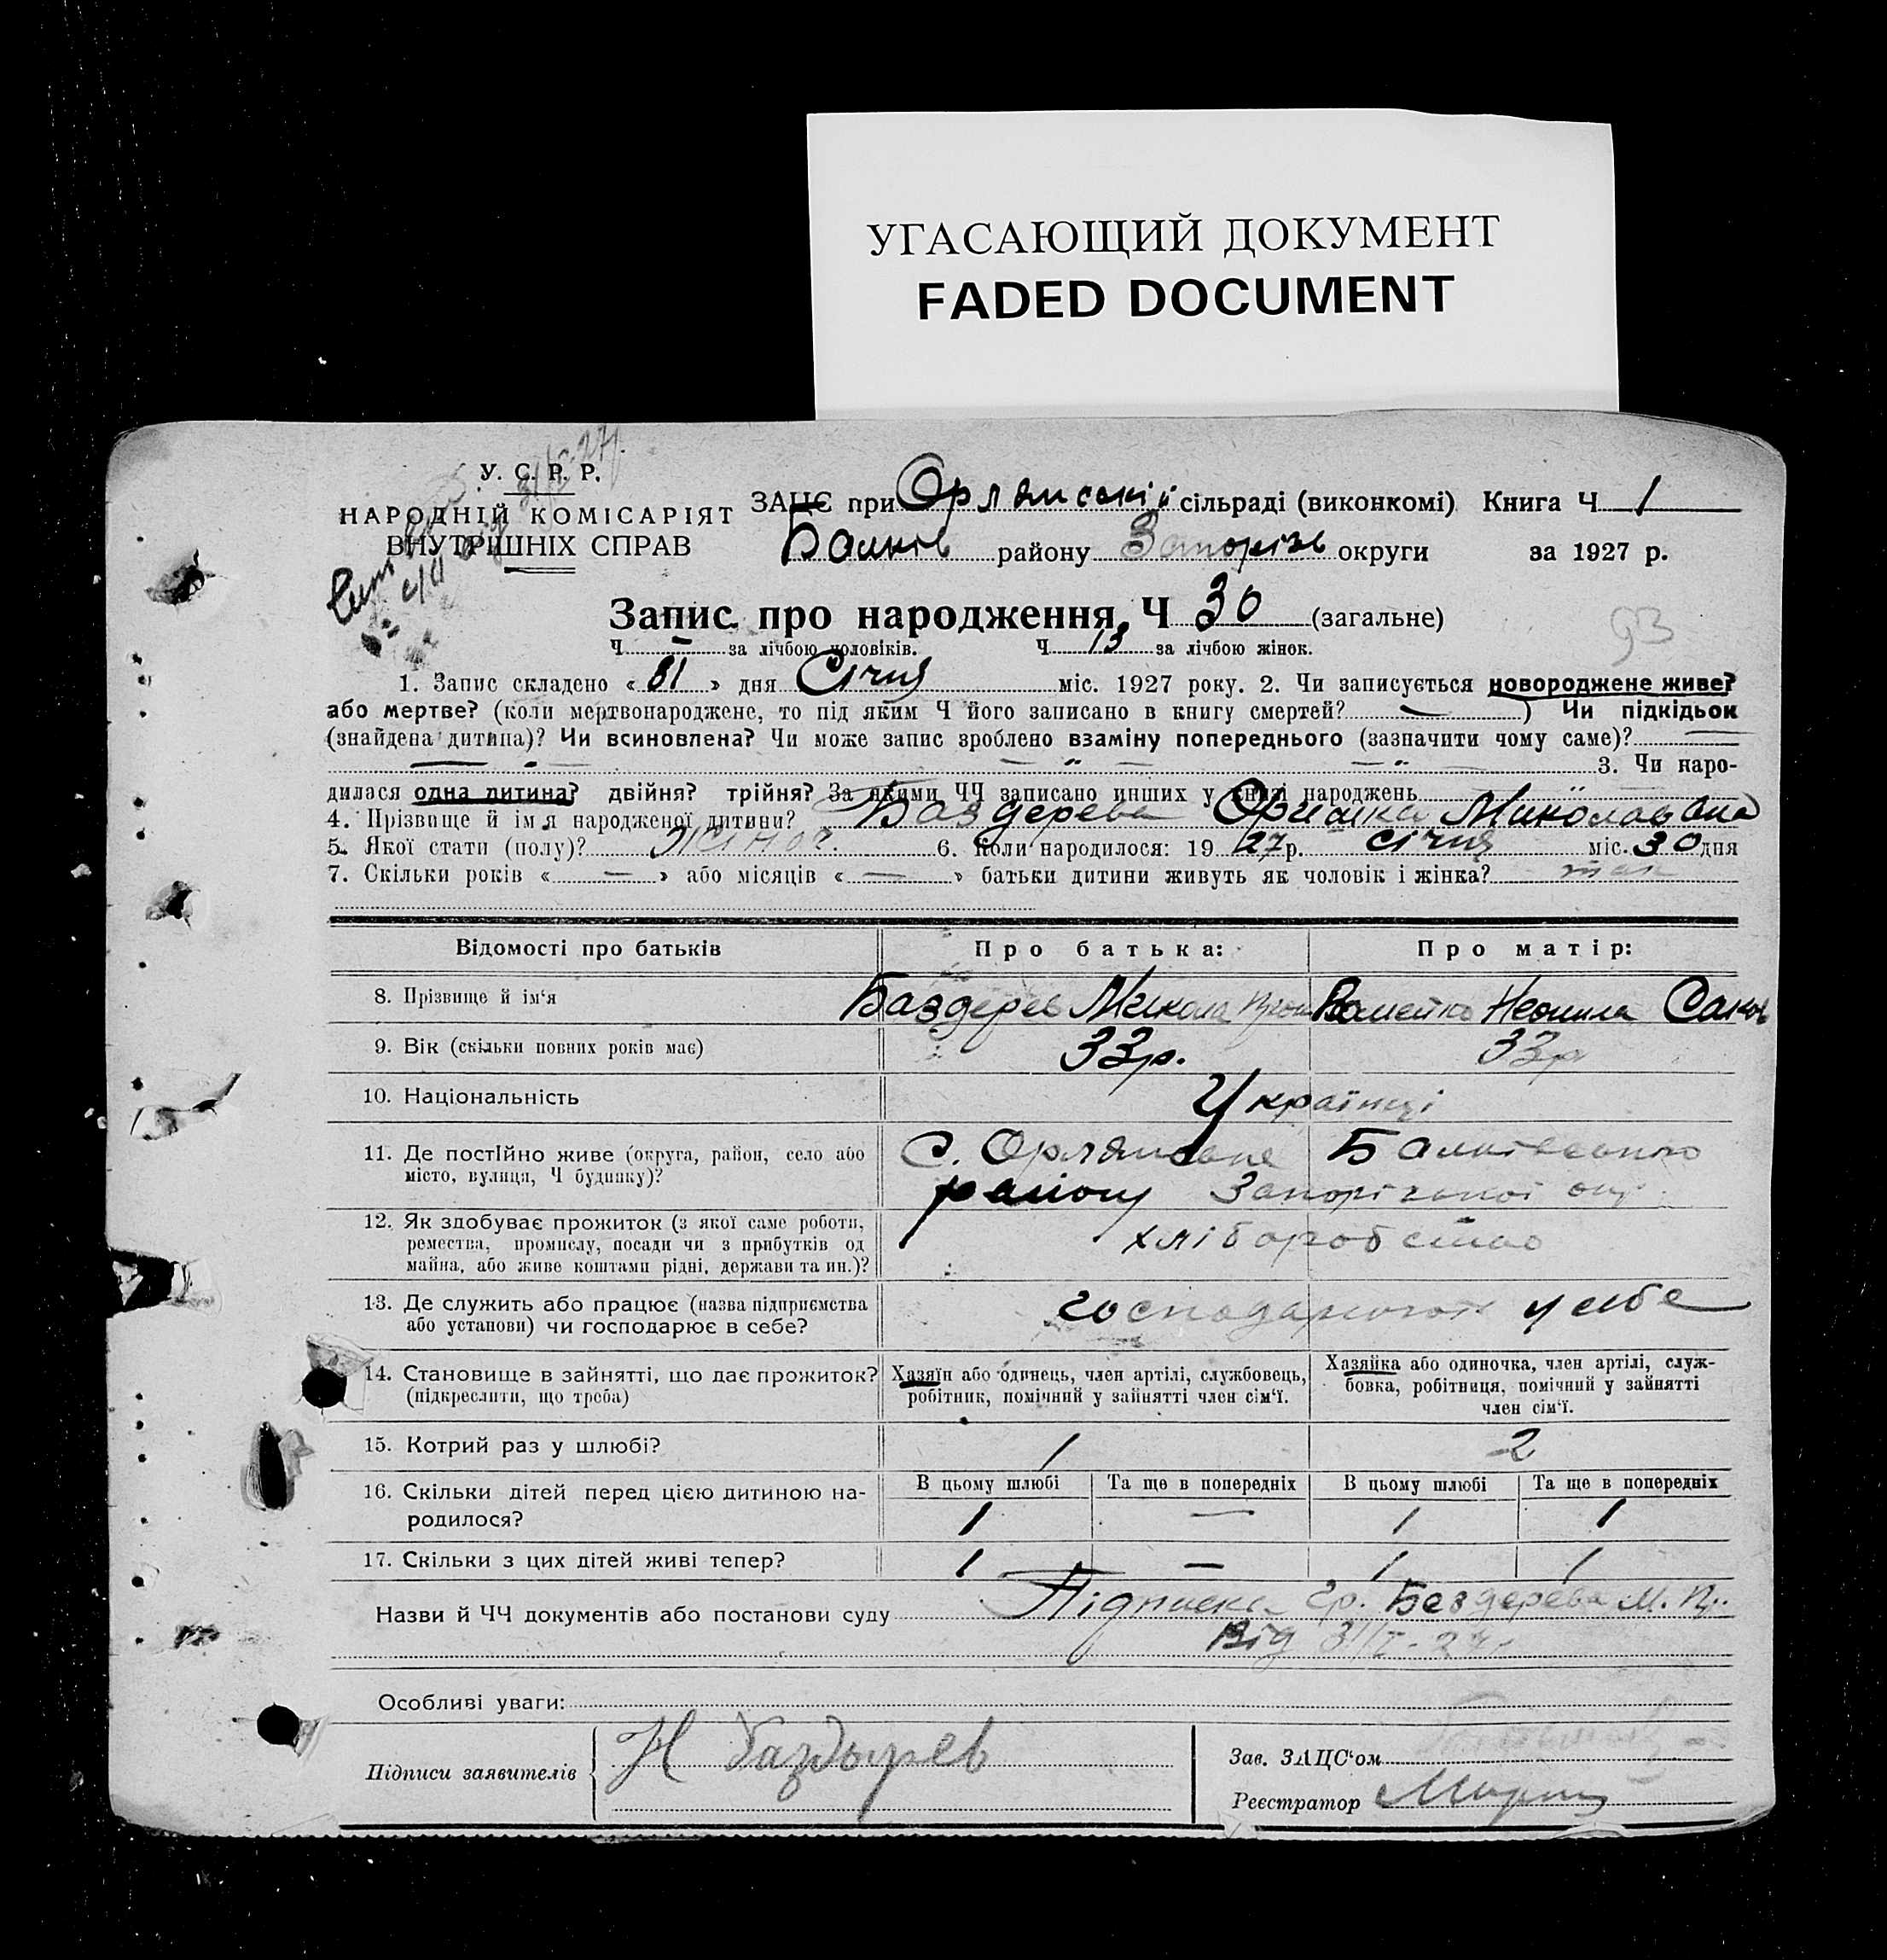 УГАСАЮЩИЙ ДОКУМЕНТ
FADED DOCUMENT
У. С. Р. Р.
НАРОДНІЙ КОМІСАРІЯТ
ВНУТРІШНІХ СПРАВ
ЗАЦС при Орлянській сільраді (виконкомі) Книга Ч 1
Балків району Запорізь округи за 1927 р.
Запис про народження Ч 30 (загальне)
Ч — за лічбою чоловіків. Ч 13 за лічбою жінок.
93
1. Запис складено « 31 » дня Січня міс. 1927 року. 2. Чи записується новороджене живе?
або мертве? (коли мертвонароджене, то під яким Ч його записано в книгу смертей? — ) Чи підкідьок
(знайдена дитина)? Чи всиновлена? Чи може запис зроблено взаміну попереднього (зазначити чому саме)? —
— " — — " — — " — 3. Чи наро-
дилася одна дитина? двійня? трійня? За якими ЧЧ записано инших у книзі народжень
4. Прізвище й імя народженої дитини? Баздерева Оришка Миколаєвна
5. Якої стати (полу)? Жіноч. 6. Коли народилося: 19 27 р. січня міс. 30 дня
7. Скільки років « — » або місяців « — » батьки дитини живуть як чоловік і жінка? так
Відомості про батьків Про батька: Про матір:
8. Прізвище й ім'я Баздерев Микола Неонила
9. Вік (скільки повних років має) 33р. 33р
10. Національність Українці
11. Де постійно живе (округа, район, село або С. Орлянське Балківського
місто, вулиця, Ч будинку)? району Запорізької окр.
12. Як здобуває прожиток (з якої саме роботи,
ремества, промислу, посади чи з прибутків од хліборобство
майна, або живе коштами рідні, держави та ин.)?
13. Де служить або працює (назва підприємства господарюють у себе
або установи) чи господарює в себе?
14. Становище в зайнятті, що дає прожиток? Хазяїн або одинець, член артілі, службовець, Хазяйка або одиночка, член артілі, служ-
(підкреслити, що треба) робітник, помічний у зайнятті член сім'ї. бовка, робітниця, помічний у зайнятті
член сім'ї.
15. Котрий раз у шлюбі? 1 2
16. Скільки дітей перед цією дитиною на- В цьому шлюбі Та ще в попередніх В цьому шлюбі Та ще в попередніх
родилося? 1 — 1 1
17. Скільки з цих дітей живі тепер? 1 — 1 1
Назви й ЧЧ документів або постанови суду Підписка гр. Бездерева М. Пр.
Від 31/I-27р
Особливі уваги:
Підписи заявителів Н Баздырев
Зав. ЗАЦС'ом
Реєстратор